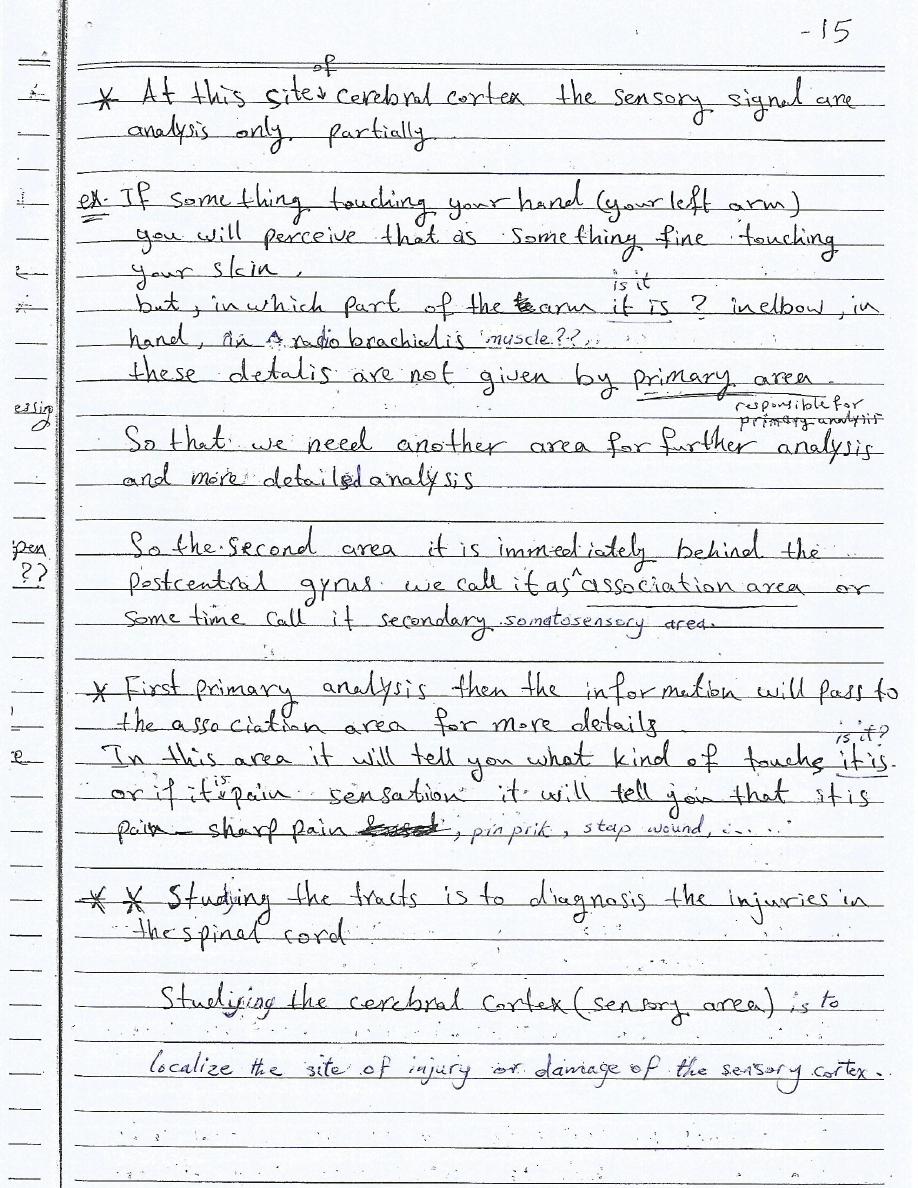 -15
of
* At this site cerebral cortex the sensory signal are
analysis only partially
ex. If something touching your hand (your left arm)
you will perceive that as something fine touching
your skin,
is it
but, in which part of the arm it is ? in elbow, in
hand, in radio brachialis muscle??
these detalis are not given by primary area.
responsible for
primary analysis
essing
So that we need another area for further analysis
and more detailed analysis
So the second area it is immediately behind the
pen
??
postcentral gyrus we call it as association area or
some time call it secondary somatosensory area.
* First primary analysis then the information will pass to
the association area for more details
is it?
In this area it will tell you what kind of touch it is.
or if it is pain sensation it will tell you that it is
pain - sharp pain, pin prik, stap wound, .....
* * Studying the tracts is to diagnosis the injuries in
the spinal cord
Studying the cerebral cortex (sensory area) is to
localize the site of injury or damage of the sensory cortex.